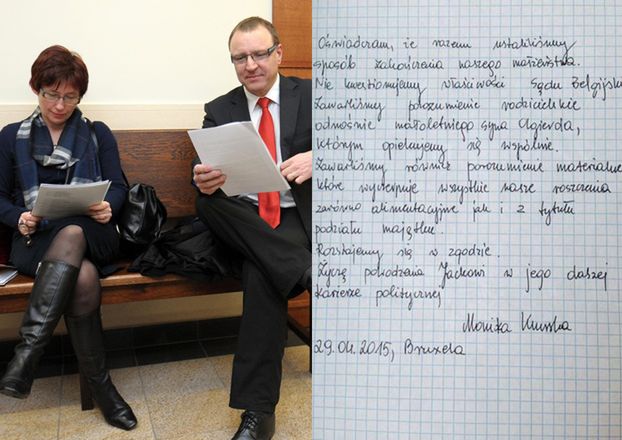 Oświadczam, że razem ustaliliśmy
sposób zakończenia naszego małżeństwa.
Nie kwestionujemy właściwości Sądu Belgijski
Zawarliśmy porozumienie rodzicielskie
odnośnie małoletniego syna Olgierda,
którym opiekujemy się wspólnie.
Zawarliśmy również porozumienie materialne
które wyczerpuje wszystkie nasze roszczenia
zarówno alimentacyjne jak i z tytułu
podziału majątku.
Rozstajemy się w zgodzie.
Życzę powodzenia Jackowi w jego dalszej
karierze politycznej
Monika Kurska
29.04.2015, Bruksela